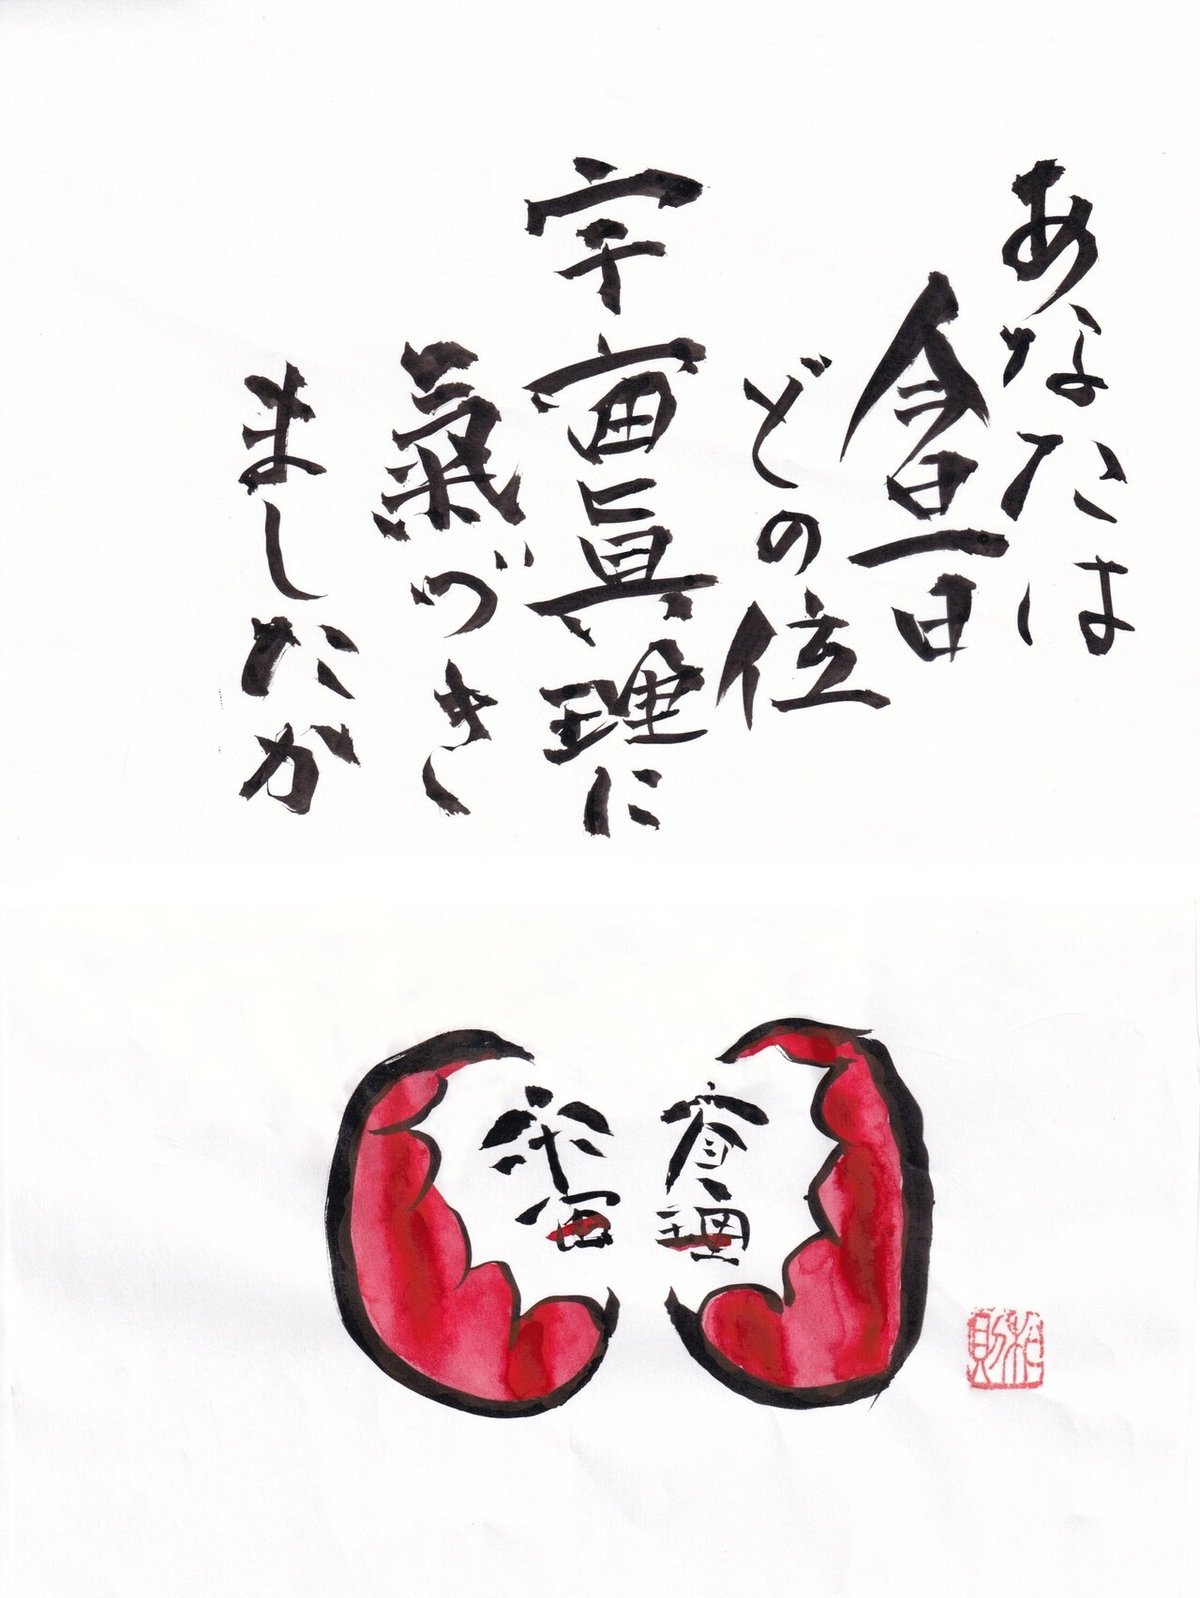 あなたは
今日一日
どの位
宇宙眞理に
氣づき
ましたか
宇宙
眞理